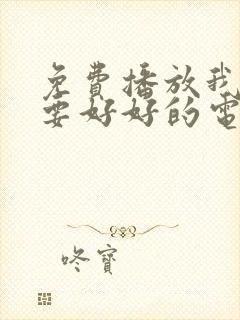 免费播放我
要好好的電
咚寶